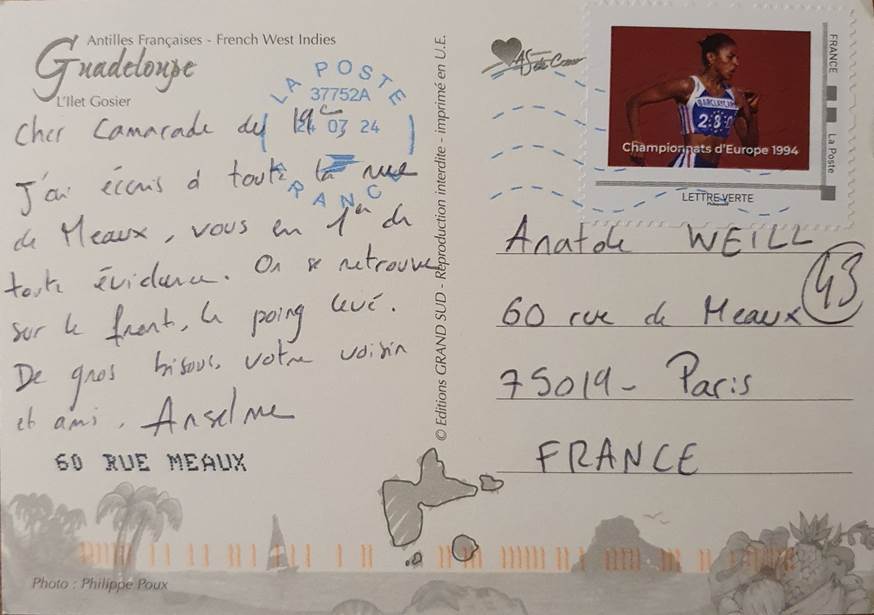 Antilles Françaises - French West Indies
Guadeloupe
L'Ilet Gosier
LA POSTE
37752A
24 03 24
FRANCE
Cher Camarade du 19e
J'ai écris à toute la rue
de Meaux, vous en 1er de
toute évidence. On se retrouve
sur le front, le poing levé.
De gros bisous, votre voisin
et ami, Anselme
60 RUE MEAUX
Photo : Philippe Poux
© Editions GRAND SUD - Reproduction interdite - imprimé en U.E.
As de Coeur
BARCLAYCARD
280
Championnats d'Europe 1994
FRANCE
La Poste
LETTRE VERTE
Anatole WEILL
43
60 rue de Meaux
75019 - Paris
FRANCE